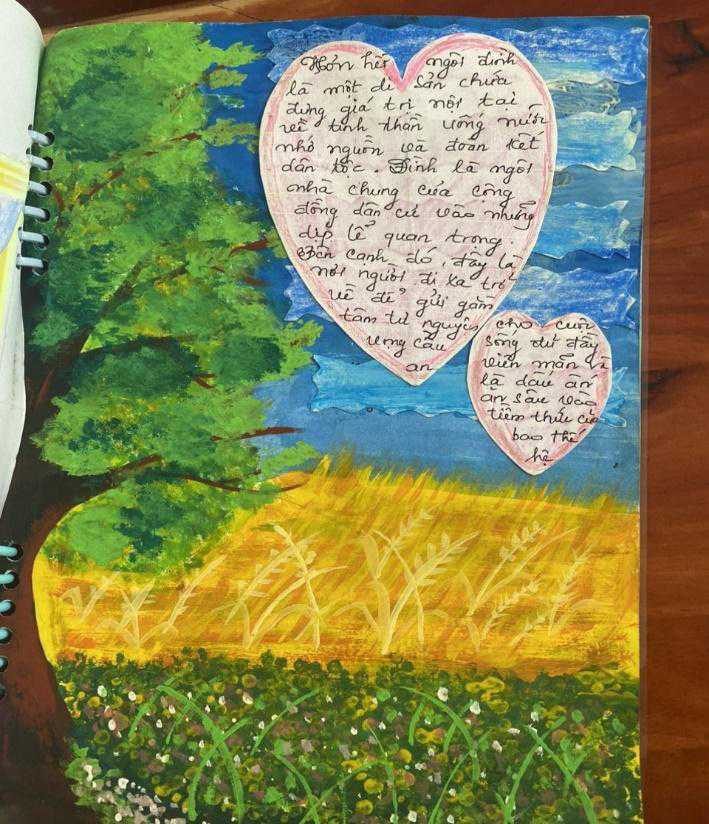 Hơn hết ngôi đình
là một di sản chứa
đựng giá trị nội tại
về tinh thần uống nước
nhớ nguồn và đoàn kết
dân tộc. Đình là ngôi
nhà chung của cộng
đồng dân cư vào những
dịp lễ quan trọng.
Bên cạnh đó, đây là
nơi người đi xa trở
về để gửi gắm
tâm tư nguyện
vọng cầu
an
cho cuộc
sống dư đầy
viên mãn và
là dấu ấn
ăn sâu vào
tiềm thức của
bao thế
hệ